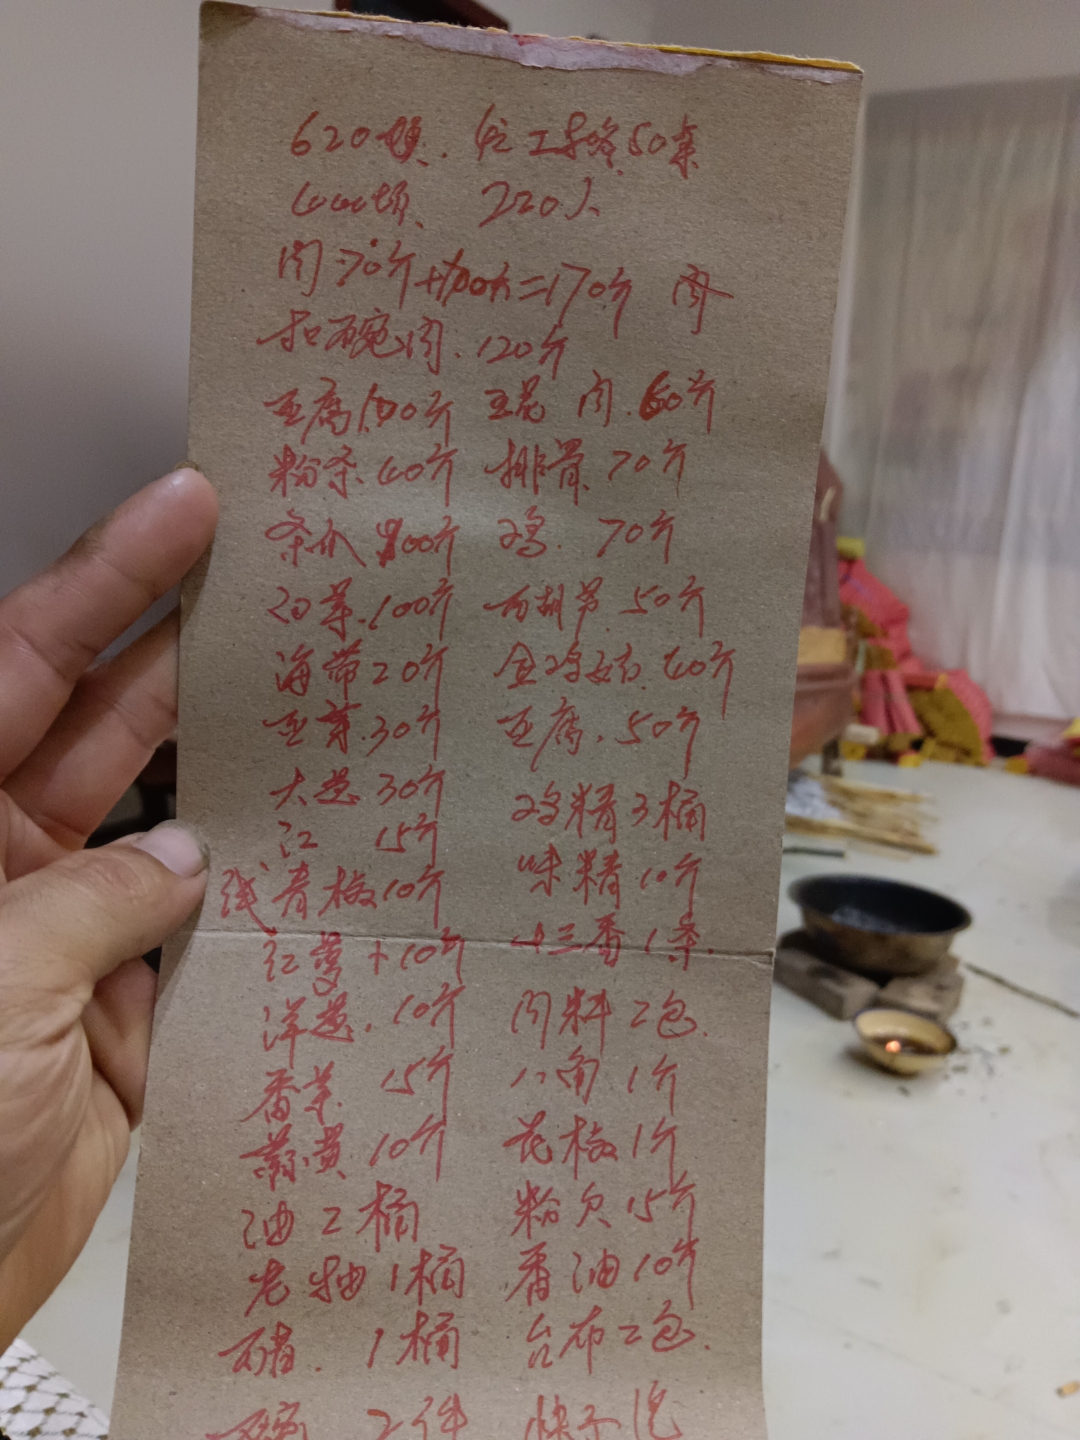 620 50桌
220人
肉70斤+100斤=170斤 肉
扣碗肉.120斤
豆腐100斤 豆花 肉.60斤
粉条.40斤 排骨.70斤
条瓜 100斤 鸡. 70斤
白菜.100斤 西胡芦 50斤
海带20斤 40斤
豆芽.30斤 豆腐.50斤
大葱30斤 鸡精3桶
江 15斤 味精10斤
线青椒10斤 十三香1条.
红萝卜10斤 肉料2包.
洋葱.10斤 八角1斤
香菜 15斤 花椒1斤
蒜黄10斤 粉欠15斤
油2桶 香油10斤
老抽1桶 台布2包.
醋.1桶
碗 2件 快子1包